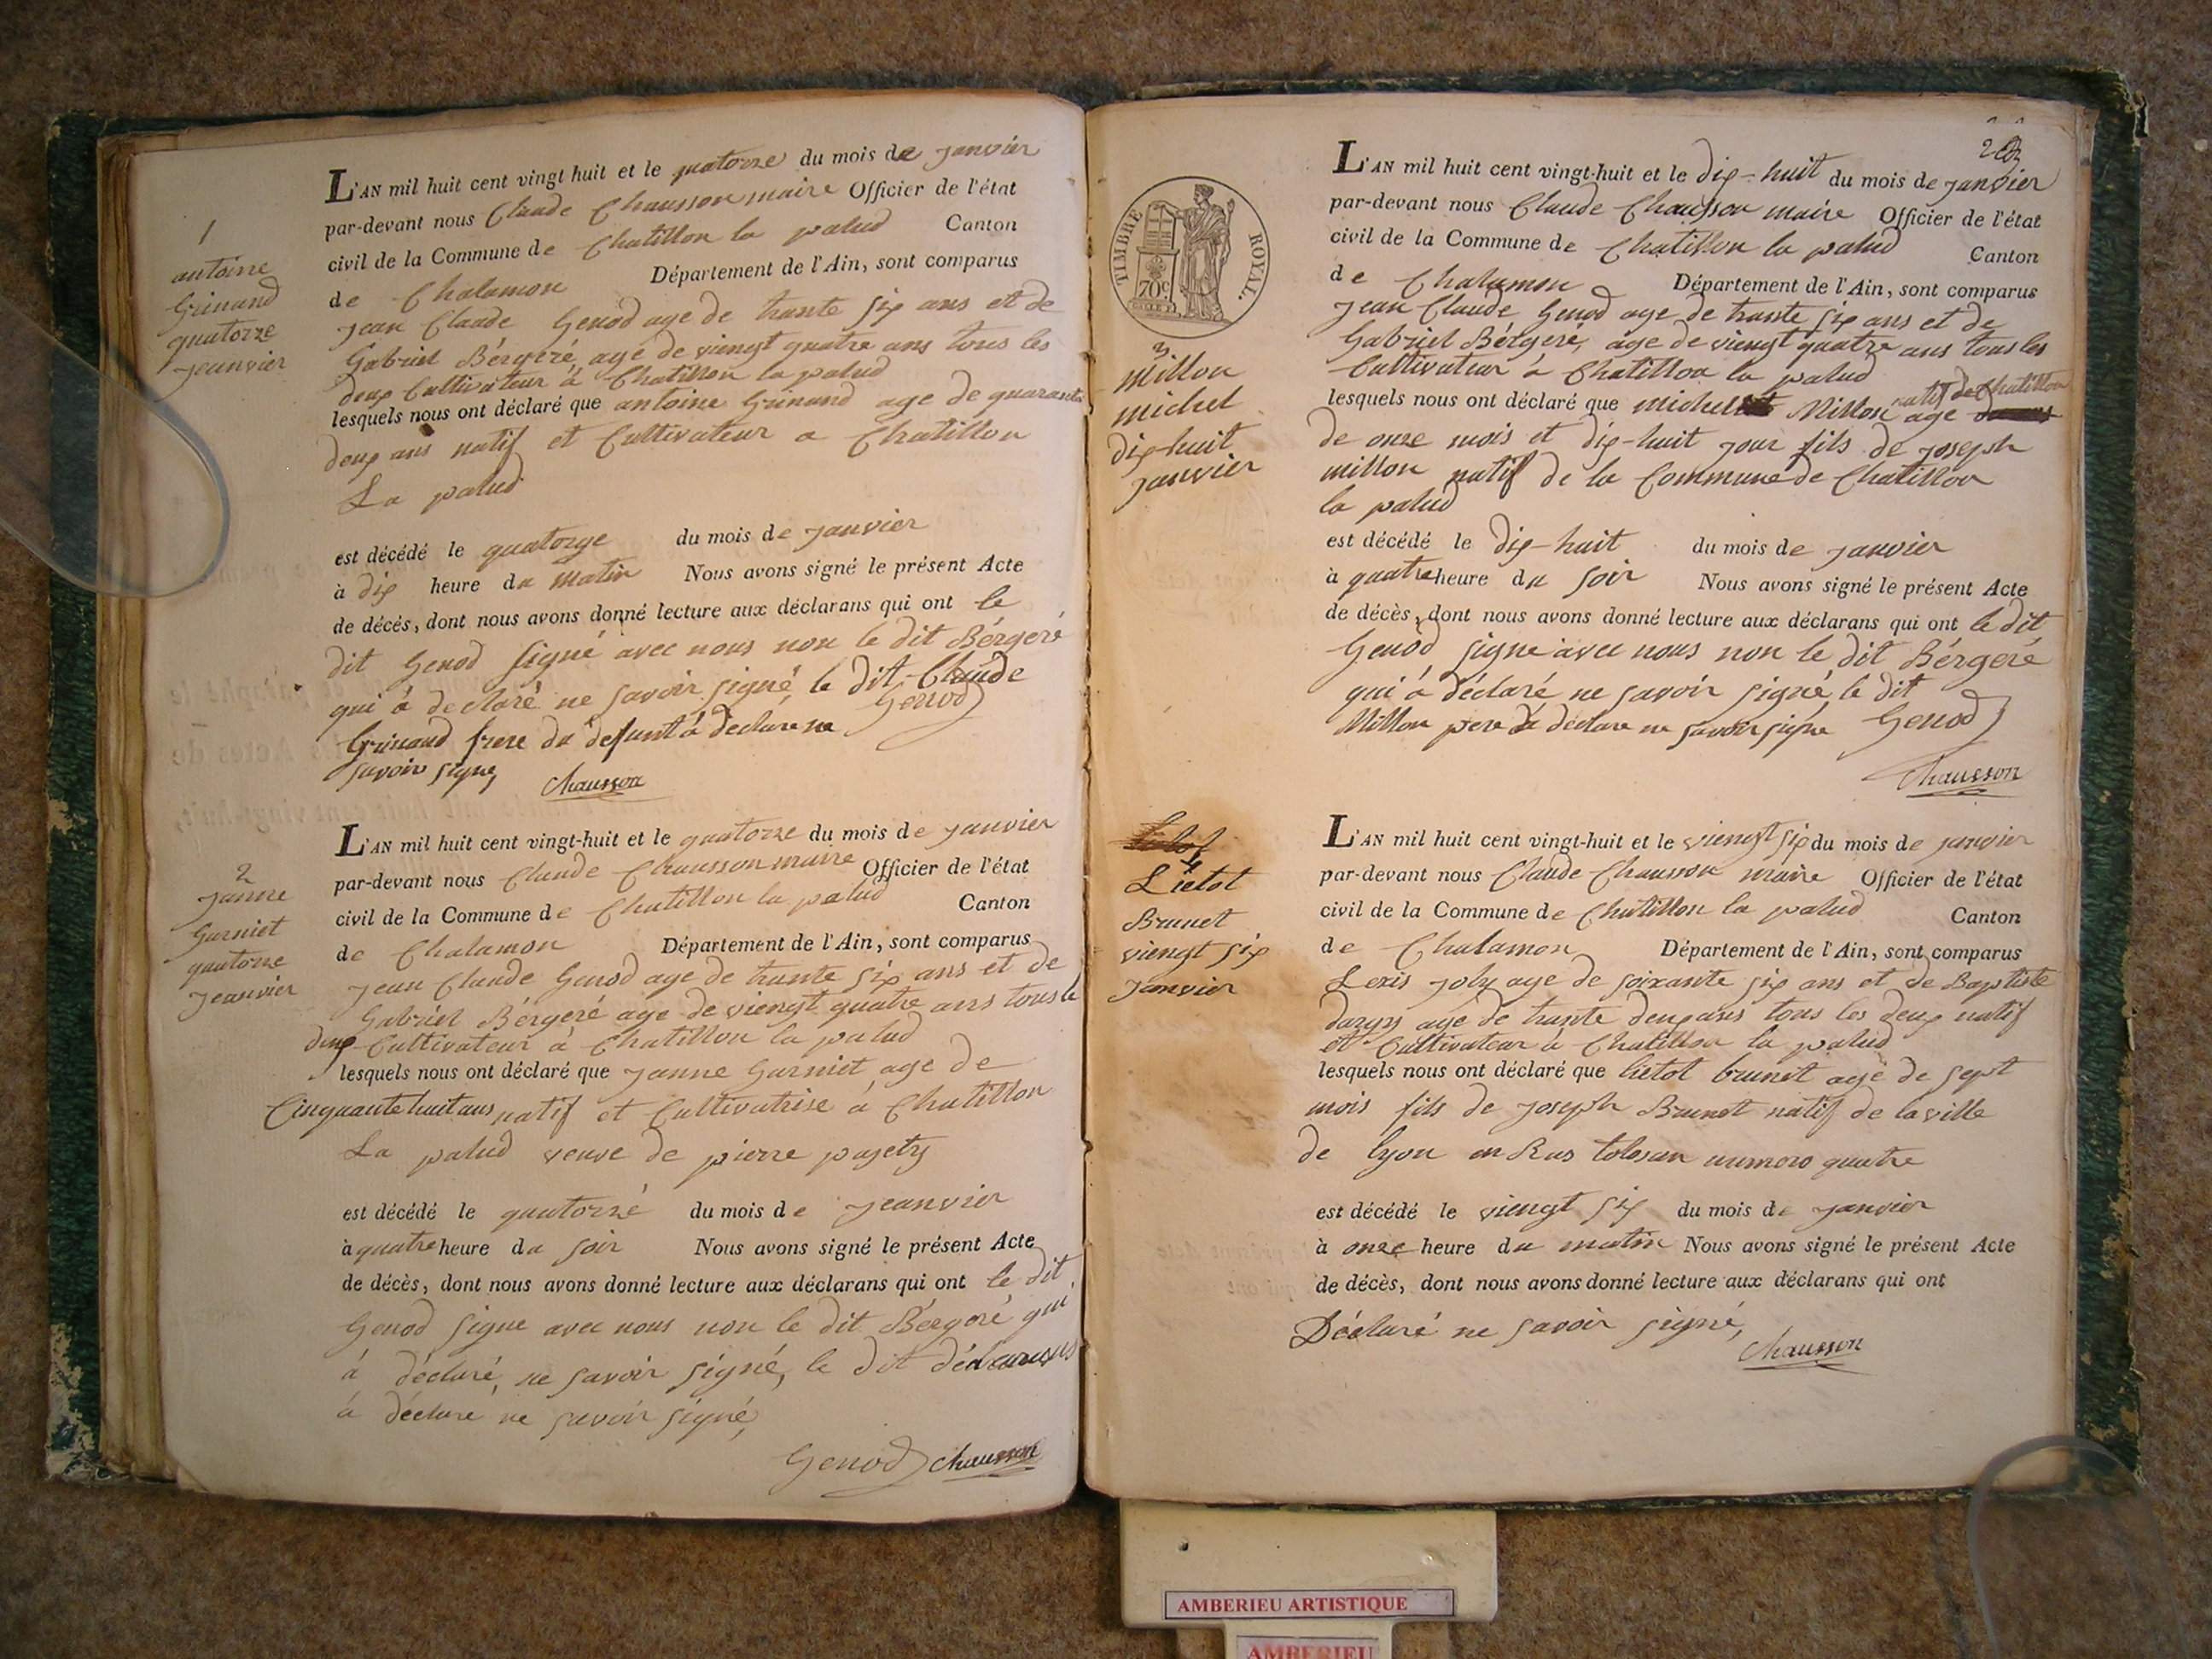 1
antoine
Grinand
quatorze
jeanvier
L'AN mil huit cent vingt huit et le quatorze du mois de janvier
par-devant nous Claude Chausson maire Officier de l'état
civil de la Commune de Chatillon la palud Canton
de Chalamon Département de l'Ain, sont comparus
jean Claude Genod age de trante six ans et de
Gabriel Bérgeré, age de viengt quatre ans tous les
deux Cultivateur à Chatillon la palud
lesquels nous ont déclaré que antoine Grinand age de quarante
deux ans natif et Cultivateur a Chatillon
La palud
est décédé le quatorze du mois de janvier
à dix heure du matin Nous avons signé le présent Acte
de décès, dont nous avons donné lecture aux déclarans qui ont le
dit Genod signé avec nous non le dit Bérgeré
qui à declaré ne savoir signé, le dit Claude
Genod
Grinand frere du defunt à declare ne
savoir signe,
Chausson
2
janne
Garniet
quatorze
jeanvier
L'AN mil huit cent vingt-huit et le quatorze du mois de janvier
par-devant nous Claude Chausson maire Officier de l'état
civil de la Commune de Chatillon la palud Canton
de Chalamon Département de l'Ain, sont comparus
jean Claude Genod age de trante six ans et de
Gabriel Bérgeré age de viengt quatre ans tous le
deux Cultivateur à Chatillon la palud
lesquels nous ont déclaré que janne Garniet age de
Cinquante huit ans natif et Cultivatrise à Chatillon
La palud veuve de pierre
est décédé le quatorzé du mois de jeanvier
à quatre heure du soir Nous avons signé le présent Acte
de décès, dont nous avons donné lecture aux déclarans qui ont le dit
Genod signe avec nous non le dit Bérgeré qui
à déclaré, ne savoir signé, le dit
à déclare ne savoir signé,
Genod Chausson
TIMBRE ROYAL.
70c
3
Millon
michel
dix-huit
janvier
L'AN mil huit cent vingt-huit et le dix-huit du mois de janvier
par-devant nous Claude Chausson maire Officier de l'état
civil de la Commune de Chatillon la palud Canton
de Chalamon Département de l'Ain, sont comparus
jean Claude Genod age de trante six ans et de
Gabriel Bérgeré, age de viengt quatre ans tous les
Cultivateur à Chatillon la palud
natif de Chatillon
lesquels nous ont déclaré que michel Millon age
de onze mois et dix-huit jour fils de joseph
millon natif de la Commune de Chatillon
la palud
est décédé le dix-huit du mois de janvier
à quatre heure du soir Nous avons signé le présent Acte
de décès, dont nous avons donné lecture aux déclarans qui ont le dit
Genod signe avec nous non le dit Bérgeré
qui à déclaré ne savoir signé le dit
Millon pere à déclare ne savoir signe Genod
Chausson
4
Lietot
Brunet
viengt six
janvier
L'AN mil huit cent vingt-huit et le viengt six du mois de janvier
par-devant nous Claude Chausson maire Officier de l'état
civil de la Commune de Chatillon la palud Canton
de Chalamon Département de l'Ain, sont comparus
joly age de soixante six ans et de Baptiste
age de trante deux ans tous les deux natif
et Cultivateur à Chatillon la palud
lesquels nous ont déclaré que lietot brunet age de sept
mois fils de joseph Brunet natif de la ville
de lyon en Rus tolosan numero quatre
est décédé le viengt six du mois de janvier
à onze heure du matin Nous avons signé le présent Acte
de décès, dont nous avons donné lecture aux déclarans qui ont
Déclaré ne savoir signé,
Chausson
AMBERIEU ARTISTIQUE
AMBERIEU